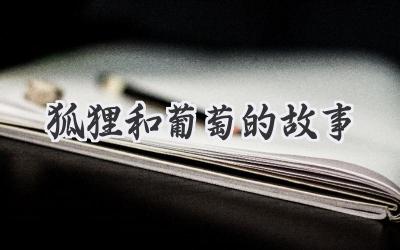 狐狸和葡萄的故事